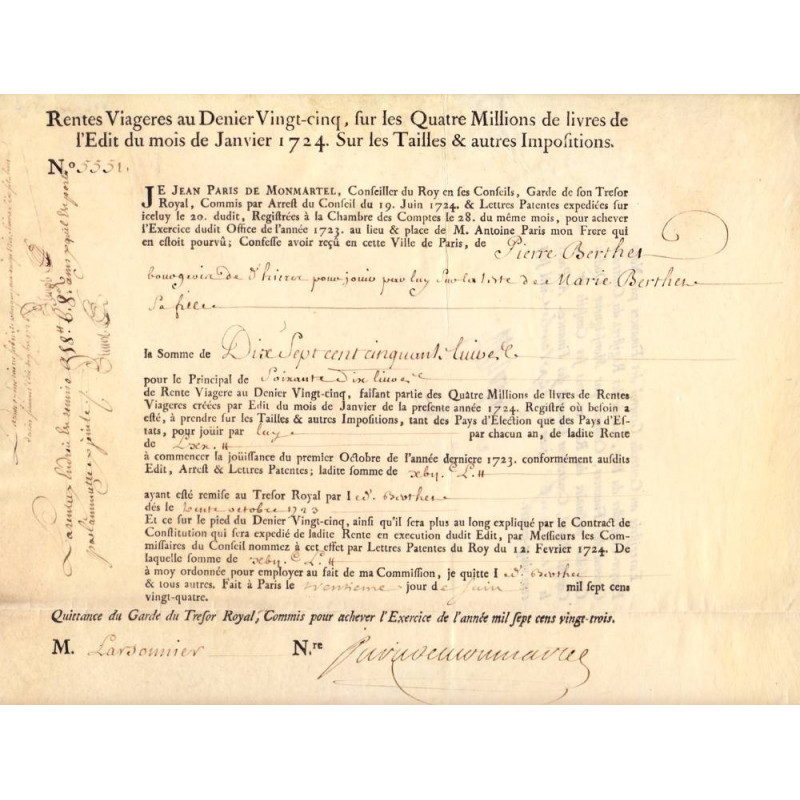 Rentes Viageres au Denier Vingt-cinq, sur les Quatre Millions de livres de
l'Edit du mois de Janvier 1724. Sur les Tailles & autres Impositions.
N.º 5551.
JE JEAN PARIS DE MONMARTEL, Conseiller du Roy en ses Conseils, Garde de son Tresor
Royal, Commis par Arrest du Conseil du 19. Juin 1724. & Lettres Patentes expediées sur
iceluy le 20. dudit, Registrées à la Chambre des Comptes le 28. du même mois, pour achever
l'Exercice dudit Office de l'année 1723. au lieu & place de M. Antoine Paris mon Frere qui
en estoit pourvû; Confesse avoir reçû en cette Ville de Paris, de Pierre Berthet
bourgeois de pour jouir par luy sur la teste de Marie Berthet
sa fille
la Somme de Dix Sept cent cinquante livres
pour le Principal de Soixante dix livres
de Rente Viagere au Denier Vingt-cinq, faisant partie des Quatre Millions de livres de Rentes
Viageres créées par Edit du mois de Janvier de la presente année 1724. Registré où besoin a
esté, à prendre sur les Tailles & autres Impositions, tant des Pays d'Election que des Pays d'Es-
tats, pour joüir par luy par chacun an, de ladite Rente
de Lxx.tt
à commencer la joüissance du premier Octobre de l'année derniere 1723. conformément ausdits
Edit, Arrest & Lettres Patentes; ladite somme de xbij.C L.tt
ayant esté remise au Tresor Royal par l ed. Berthet
dès le trente octobre 1723
Et ce sur le pied du Denier Vingt-cinq, ainsi qu'il sera plus au long expliqué par le Contract de
Constitution qui sera expedié de ladite Rente en execution dudit Edit, par Messieurs les Com-
missaires du Conseil nommez à cet effet par Lettres Patentes du Roy du 12. Fevrier 1724. De
laquelle somme de xbij.C L.tt
à moy ordonnée pour employer au fait de ma Commission, je quitte l ed. Berthet
& tous autres. Fait à Paris le trentieme jour de Juin mil sept cens
vingt-quatre.
Quittance du Garde du Tresor Royal, Commis pour achever l'Exercice de l'année mil sept cens vingt-trois.
M. Larsonnier N.re Paris de monmartel